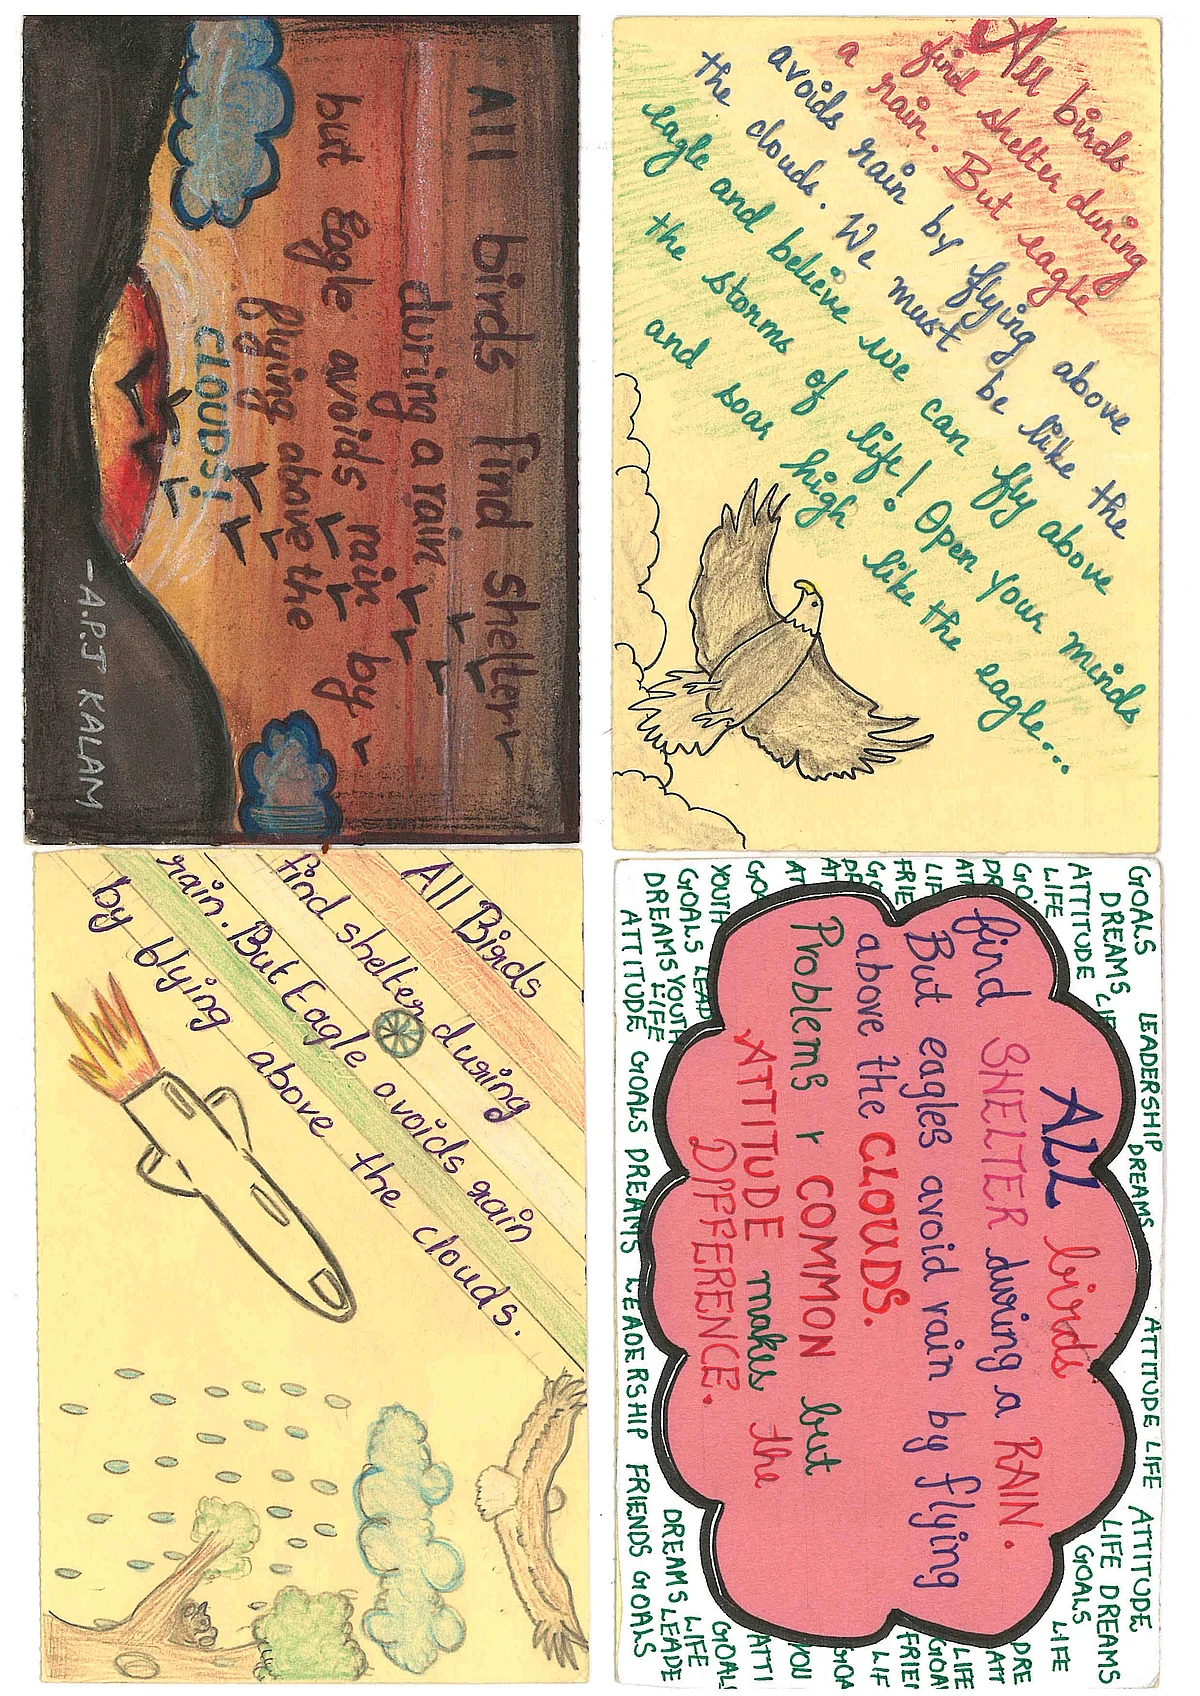 All birds
find shelter during
a rain. But eagle
avoids rain by flying above
the clouds. We must be like the
eagle and believe we can fly above
the storms of life! Open your minds
and soar high like the eagle...
GOALS LEADERSHIP DREAMS ATTITUDE LIFE ATTITUDE
DREAMS LIFE DREAMS
ATTITUDE GOALS
LIFE LIFE
ALL birds
find SHELTER during a RAIN.
But eagles avoid rain by flying
above the CLOUDS.
Problems r COMMON but
ATTITUDE makes the
DIFFERENCE.
YOUTH GOALS
GOALS LEAD LIFE
DREAMS YOUTH DREAMS LEADE
LIFE
ATTITUDE GOALS DREAMS LEADERSHIP FRIENDS GOALS
All birds find shelter
during a rain
but Eagle avoids rain by
flying above the
CLOUDS!
-A.P.J KALAM
All Birds
find shelter during
rain. But Eagle avoids rain
by flying above the clouds.